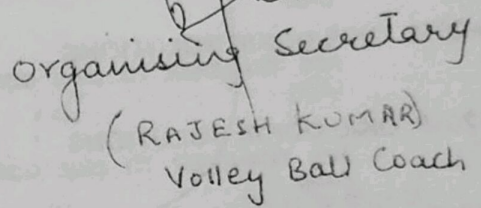 Organising Secretary
(RAJESH KUMAR)
Volley Ball Coach